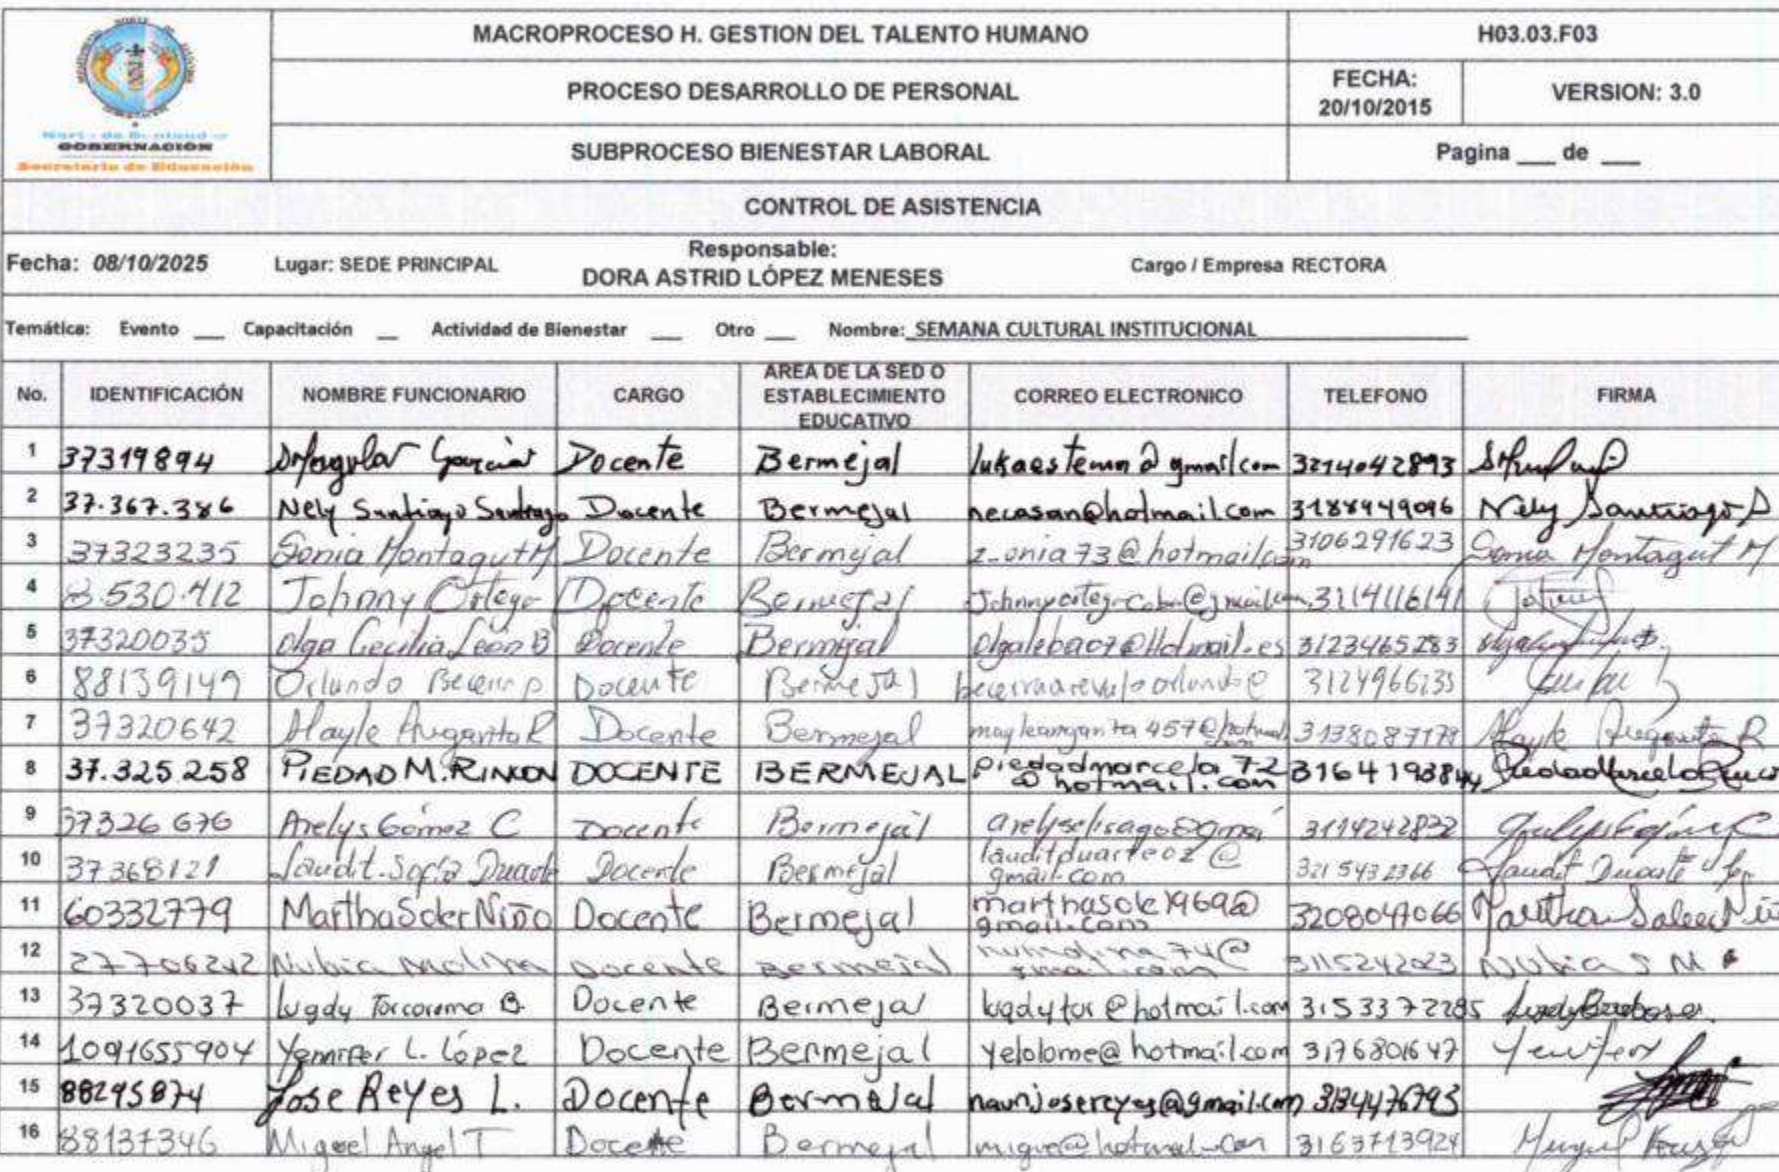 MACROPROCESO H. GESTION DEL TALENTO HUMANO
H03.03.F03
PROCESO DESARROLLO DE PERSONAL
FECHA: 20/10/2015
VERSION: 3.0
SUBPROCESO BIENESTAR LABORAL
Pagina ___ de ___
GOBERNACIÓN
Secretaría de Educación
CONTROL DE ASISTENCIA
Fecha: 08/10/2025 Lugar: SEDE PRINCIPAL Responsable: DORA ASTRID LÓPEZ MENESES Cargo / Empresa RECTORA
Temática: Evento ___ Capacitación __ Actividad de Bienestar ___ Otro ___ Nombre: SEMANA CULTURAL INSTITUCIONAL
No. IDENTIFICACIÓN NOMBRE FUNCIONARIO CARGO AREA DE LA SED O ESTABLECIMIENTO EDUCATIVO CORREO ELECTRONICO TELEFONO FIRMA
1 37319894 García Docente Bermejal 3214042893
2 37.367.386 Nely Santiago Santiago Docente Bermejal necasan@hotmail.com 3188949096 Nely Santiago S
3 37323235 Sonia Montagut M Docente Bermejal z_onia73@hotmail.com 3106291623 Sonia Montagut M
4 Johnny Ortega Docente Bermejal 3214116141
5 37320035 Olga Cecilia León B Docente Bermejal Olgaleba07@Hotmail.es 3123465283
6 88139149 Orlando Becerra Docente Bermejal becerraarevaloorlando@ 3124966235
7 37320642 Mayle Docente Bermejal
8 37.325.258 PIEDAD M. RINCON DOCENTE BERMEJAL piedadmarcela72@hotmail.com 3164193844
9 37326676 Arelys Gómez C Docente Bermejal 3114242832
10 37368121 Laudit Sofía Duarte Docente Bermejal lauditduarte02@gmail.com 3215432366 Laudit Duarte
11 60332779 Martha Soler Niño Docente Bermejal marthasole1969@gmail.com 3208047066 Martha Soler Niño
12 27706242 Nubia Molina Docente Bermejal 3115242023 Nubia S M
13 37320037 Lugdy Torcoroma B. Docente Bermejal lugdytor@hotmail.com 3153372285
14 1091655904 Yennifer L. López Docente Bermejal yelolome@hotmail.com 3176801647 Yennifer
15 88295874 Jose Reyes L. Docente Bermejal naunjosereyes@gmail.com 3134476793
16 88137346 Miguel Angel T Docente Bermejal 3163713924 Miguel